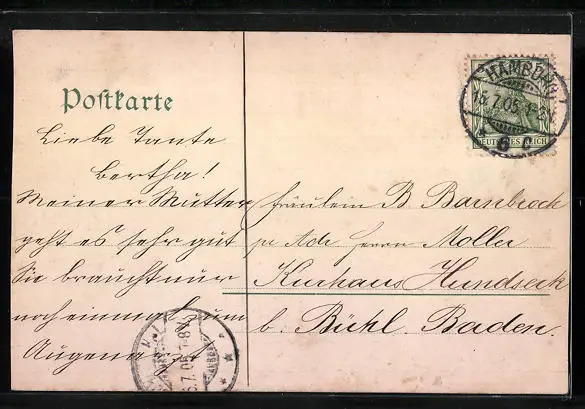 Postkarte
Liebe Tante
Bertha!
Meiner Mutter
geht es sehr gut
Sie braucht nur
noch einmal zum
Augenarzt
HAMBURG
15.7.05.1-2N
6 c
DEUTSCHES REICH
Fräulein B. Barnbrock
pr Adr Herrn Moller
Kurhaus Hundseck
b. Bühl. Baden.